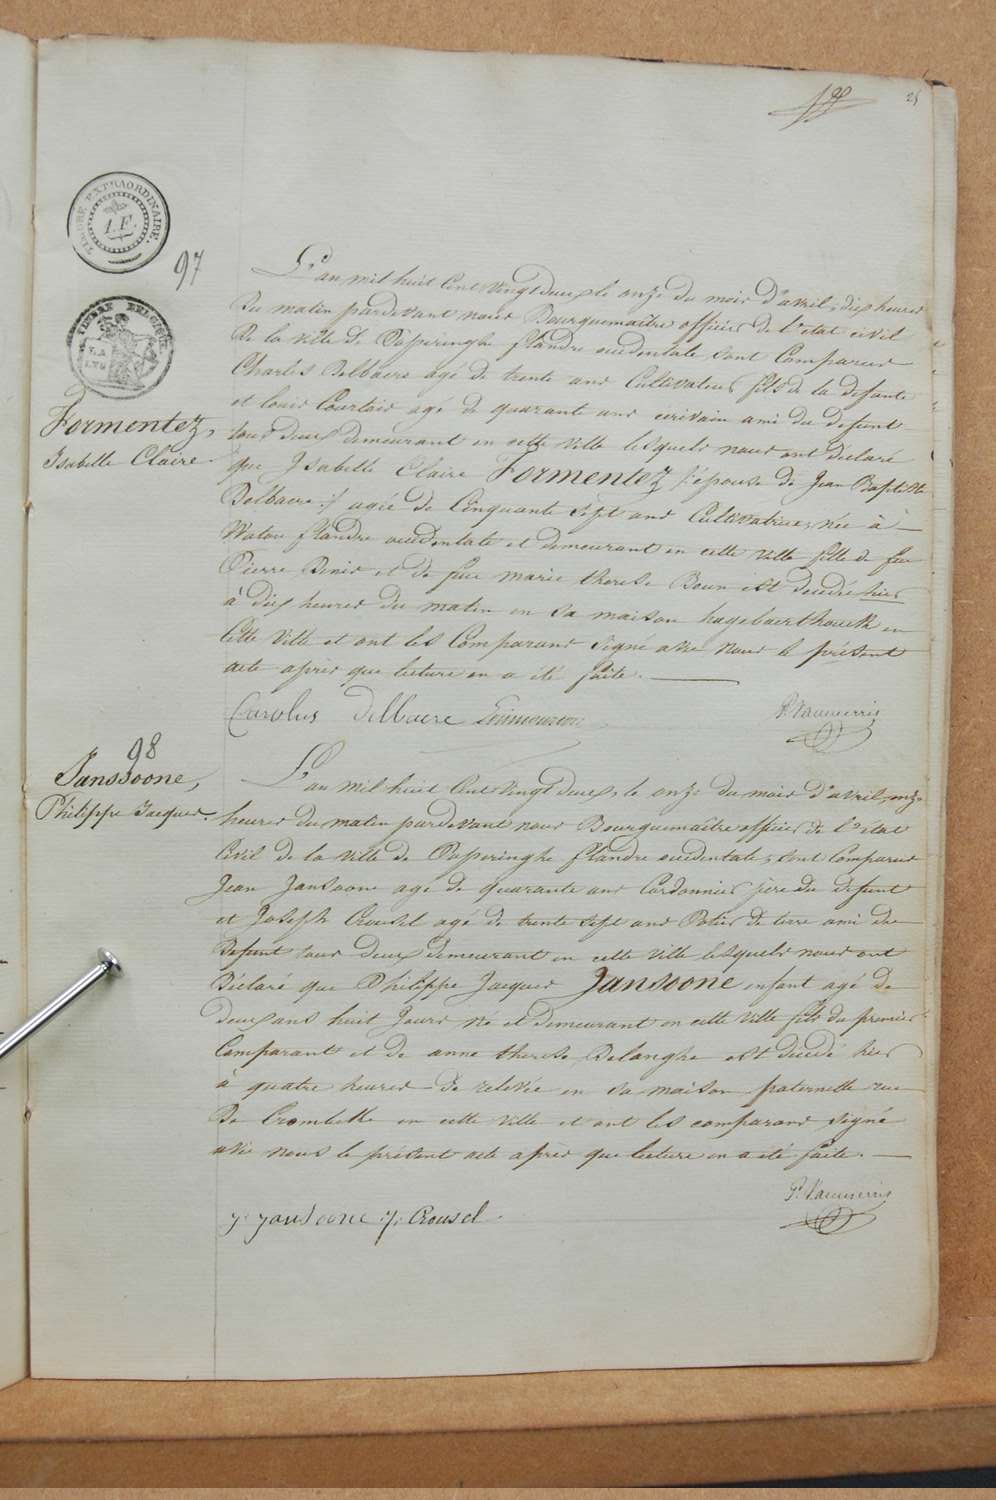 25
TIMBRE EXTRAORDINAIRE.
1. F.
97
TIMBRE BELGIQUE
Formentez,
Isabelle Claire
L'an mil huit Cent vingt deux le onze du mois d'avril, dix heures
du matin pardevant nous Bourguemaître officier de l'état civil
De la ville de Poperinghe flandre occidentale, sont Comparus
Charles Delbaere agé de trente ans Cultivateur fils de la defunte
et louis Courtois agé de quarante ans ecrivain ami du defunt
tous deux demeurant en cette ville lesquels nous ont déclaré
que Isabelle Claire Formentez /:épouse de Jean Baptiste
Delbaere:/ agée de Cinquante sept ans Cultivatrice, née à
Watou flandre occidentale et demeurant en cette ville fille de feu
Pierre Denis et de feue marie therese Boun est decedée hier
à dix heures du matin en sa maison hagebaerthouck en
Cette ville et ont les Comparans signé avec nous le présent
acte après que lecture en a été faite.
Carolus Delbaere
P. Vanmerris
98
Janssoone,
Philippe Jacques.
L'an mil huit Cent vingt deux, le onze du mois d'avril, onze
heures du matin pardevant nous Bourguemaître officier de l'état
Civil de la ville de Poperinghe flandre occidentale, sont Comparus
Jean Jansoone agé de quarante ans Cordonnier père du defunt
et Joseph Crousel agé de trente sept ans Potier de terre ami du
Defunt tous deux demeurant en cette ville lesquels nous ont
Déclaré que Philippe Jacques Jansoone enfant agé de
deux ans huit Jours né et demeurant en cette ville fils du premier
Comparant et de anne therese Delanghe est decedé hier
à quatre heures de relevée en sa maison paternelle rue
De Crombeke en cette ville et ont les comparans signé
avec nous le présent acte après que lecture en a été faite.
P. Vanmerris
j. jansoone j. Crousel.